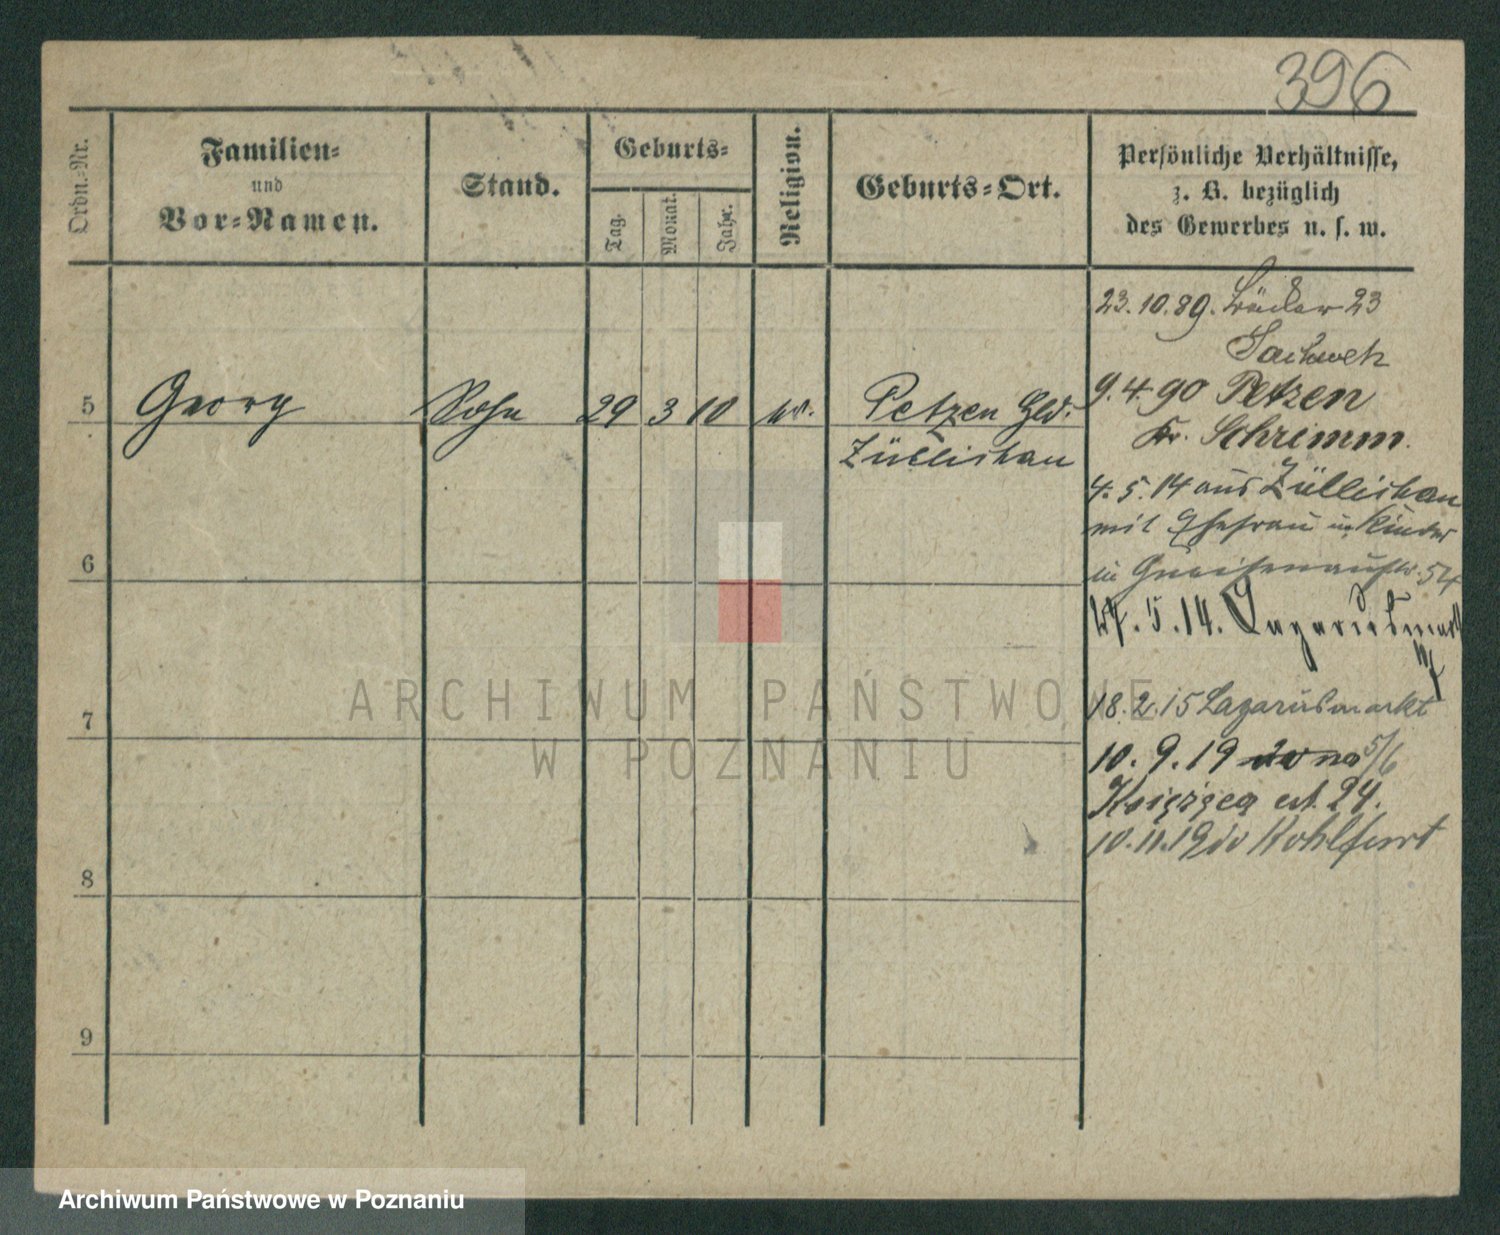 396
Ordn.-Nr.
Familien-
und
Vor-Namen.
Stand.
Geburts-
Tag.
Monat.
Jahr.
Religion.
Geburts-Ort.
Persönliche Verhältnisse,
z. B. bezüglich
des Gewerbes u. s. w.
23.10.89. 23
9.4.90 Petzen
Kr. Schrimm.
5 Georg Sohn 29 3 10 Petzen
Züllichau
4.5.14 aus Züllichau
mit Ehefrau u. Kinder
in Gneisenaustr. 54
27.5.14. Lazarusmarkt
18.2.15 Lazarusmarkt
5/6
10.9.19
24.
10.11.19 Kohlfurt
6
7
8
9
ARCHIWUM PAŃSTWOWE
W POZNANIU
Archiwum Państwowe w Poznaniu